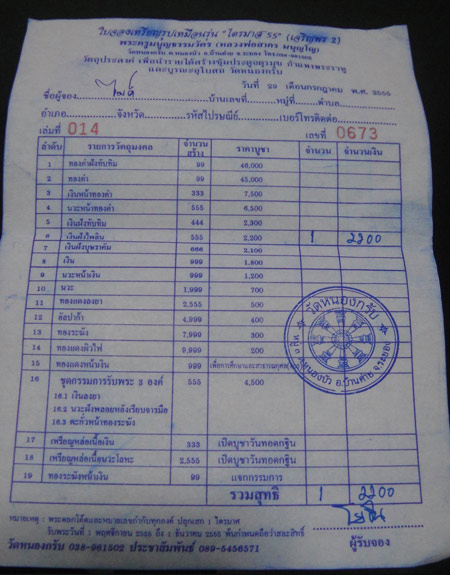 ใบจองเหรียญรูปเหมือนรุ่น "ไตรมาส 55" (เจริญพร 2)
พระครูมนูญธรรมวัตร (หลวงพ่อสาคร มนุญโญ)
วัดหนองกรับ ต.หนองบัว อ.บ้านค่าย จ.ระยอง โทร.038-961502
วัตถุประสงค์ เพื่อนำรายได้สร้างซุ้มประตูจตุรมุข กำแพงพระราหู
และบูรณะอุโบสถ วัดหนองกรับ
วันที่ 29 เดือนกรกฎาคม พ.ศ. 2555
ชื่อผู้จอง บ้านเลขที่ หมู่ที่ ตำบล
อำเภอ จังหวัด รหัสไปรษณีย์ เบอร์โทรติดต่อ
เล่มที่ 014 เลขที่ 0673
ลำดับ รายการวัตถุมงคล จำนวนสร้าง ราคาบูชา จำนวน จำนวนเงิน
1 ทองคำฝังทับทิม 99 46,000
2 ทองคำ 99 45,000
3 เงินหน้าทองคำ 333 7,500
4 นวะหน้าทองคำ 555 6,500
5 เงินฝังทับทิม 444 2,300
6 เงินฝังไพลิน 555 2,200 1 2200
7 เงินฝังบุษราคัม 666 2,100
8 เงิน 999 1,800
9 นวะหน้าเงิน 999 1,200
10 นวะ 1,999 700
11 ทองแดงลงยา 2,555 500
12 อัลปาก้า 4,999 400
13 ทองระฆัง 7,999 300
14 ทองแดงผิวไฟ 9,999 200
15 ทองแดงหน้าเงิน 999
16 ชุดกรรมการรับพระ 3 องค์ 555 4,500
16.1 เงินลงยา
16.2 นวะฝังพลอยหลังเรียบจารมือ
16.3 ตะกั่วหน้าทองระฆัง
17 เหรียญหล่อเนื้อเงิน 333 เปิดบูชาวันทอดกฐิน
18 เหรียญหล่อเนื้อนวะโลหะ 2,555 เปิดบูชาวันทอดกฐิน
19 ทองระฆังหน้าเงิน 99 แจกกรรมการ
รวมสุทธิ 1 2200
วัดหนองกรับ
ต.หนองบัว อ.บ้านค่าย จ.ระยอง
หมายเหตุ : พระตอกโค๊ตและหมายเลขกำกับทุกองค์ ปลุกเสก 1 ไตรมาส
รับพระวันที่ 1 พฤศจิกายน 2555 ถึง 1 ธันวาคม 2555 พ้นกำหนดถือว่าสละสิทธิ์
วัดหนองกรับ 038-961502 ประชาสัมพันธ์ 089-5456571 ผู้รับจอง